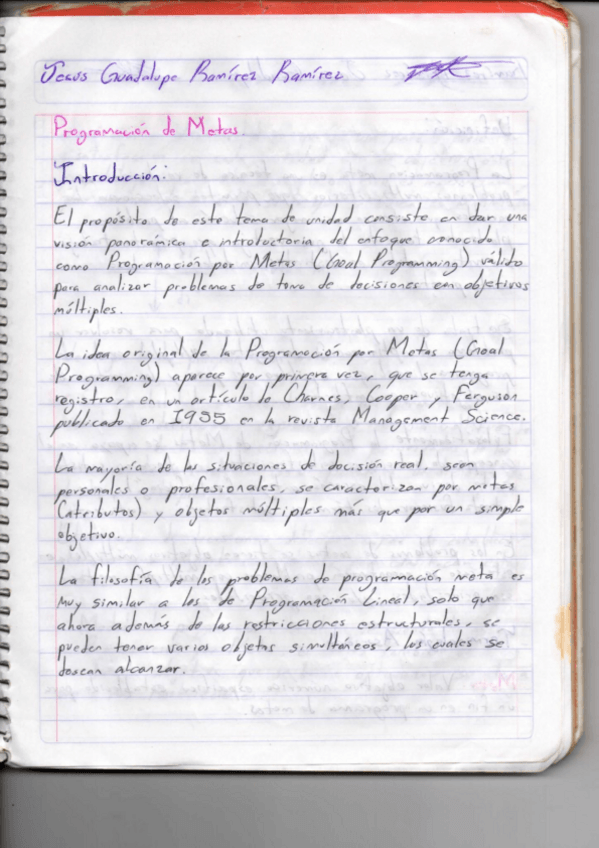 Jesus Guadalupe Ramírez Ramírez
Programación de Metas.
Introducción:
El propósito de este tema de unidad consiste en dar una
visión panorámica e introductoria del enfoque conocido
como Programación por Metas (Goal Programming) válido
para analizar problemas de toma de decisiones con objetivos
múltiples.
La idea original de la Programación por Metas (Goal
Programming) aparece por primera vez, que se tenga
registro, en un artículo de Charnes, Cooper y Ferguson
publicado en 1955 en la revista Management Science.
La mayoría de las situaciones de decisión real, sean
personales o profesionales, se caracterizan por metas
(atributos) y objetos múltiples más que por un simple
objetivo.
La filosofía de los problemas de programación meta es
muy similar a los de Programación Lineal, solo que
ahora además de las restricciones estructurales, se
pueden tener varios objetos simultáneos, los cuales se
desean alcanzar.